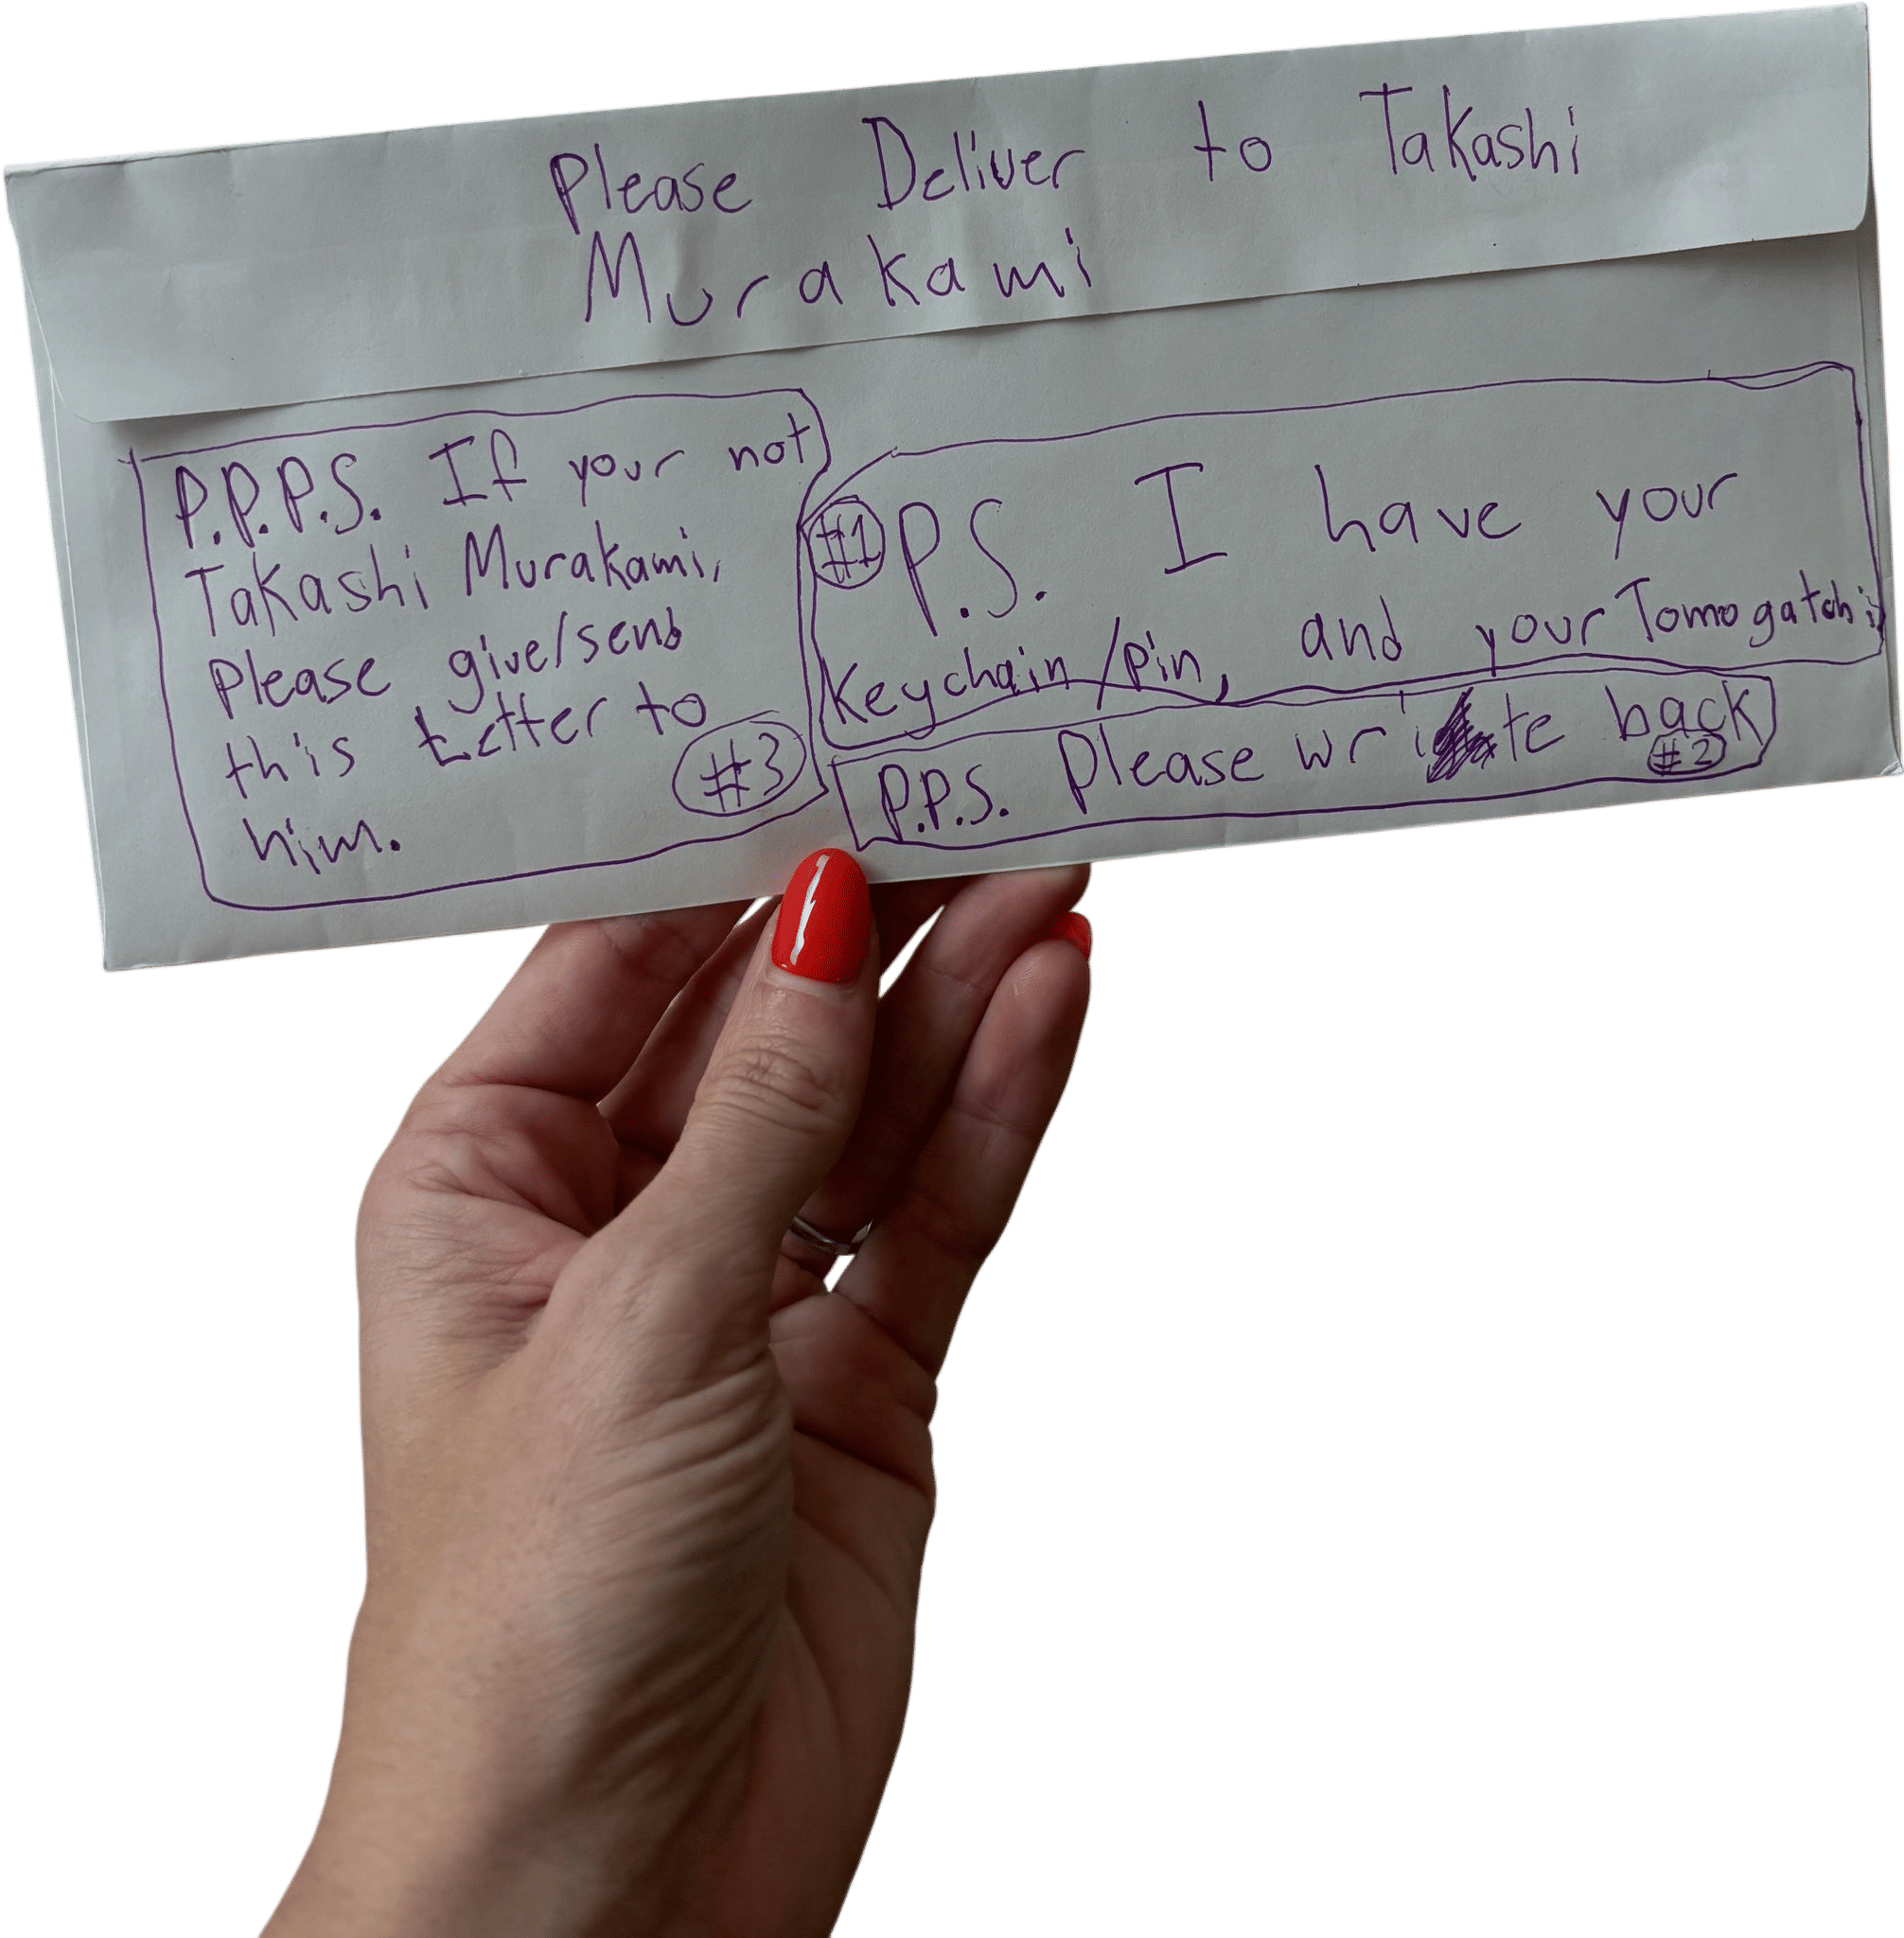 Please Deliver to Takashi
Murakami
#1 P.S. I have your
Keychain/pin, and your Tomogatchi
P.P.S. Please write back
#2
P.P.P.S. If your not
Takashi Murakami,
Please give/send
this Letter to
#3
him.